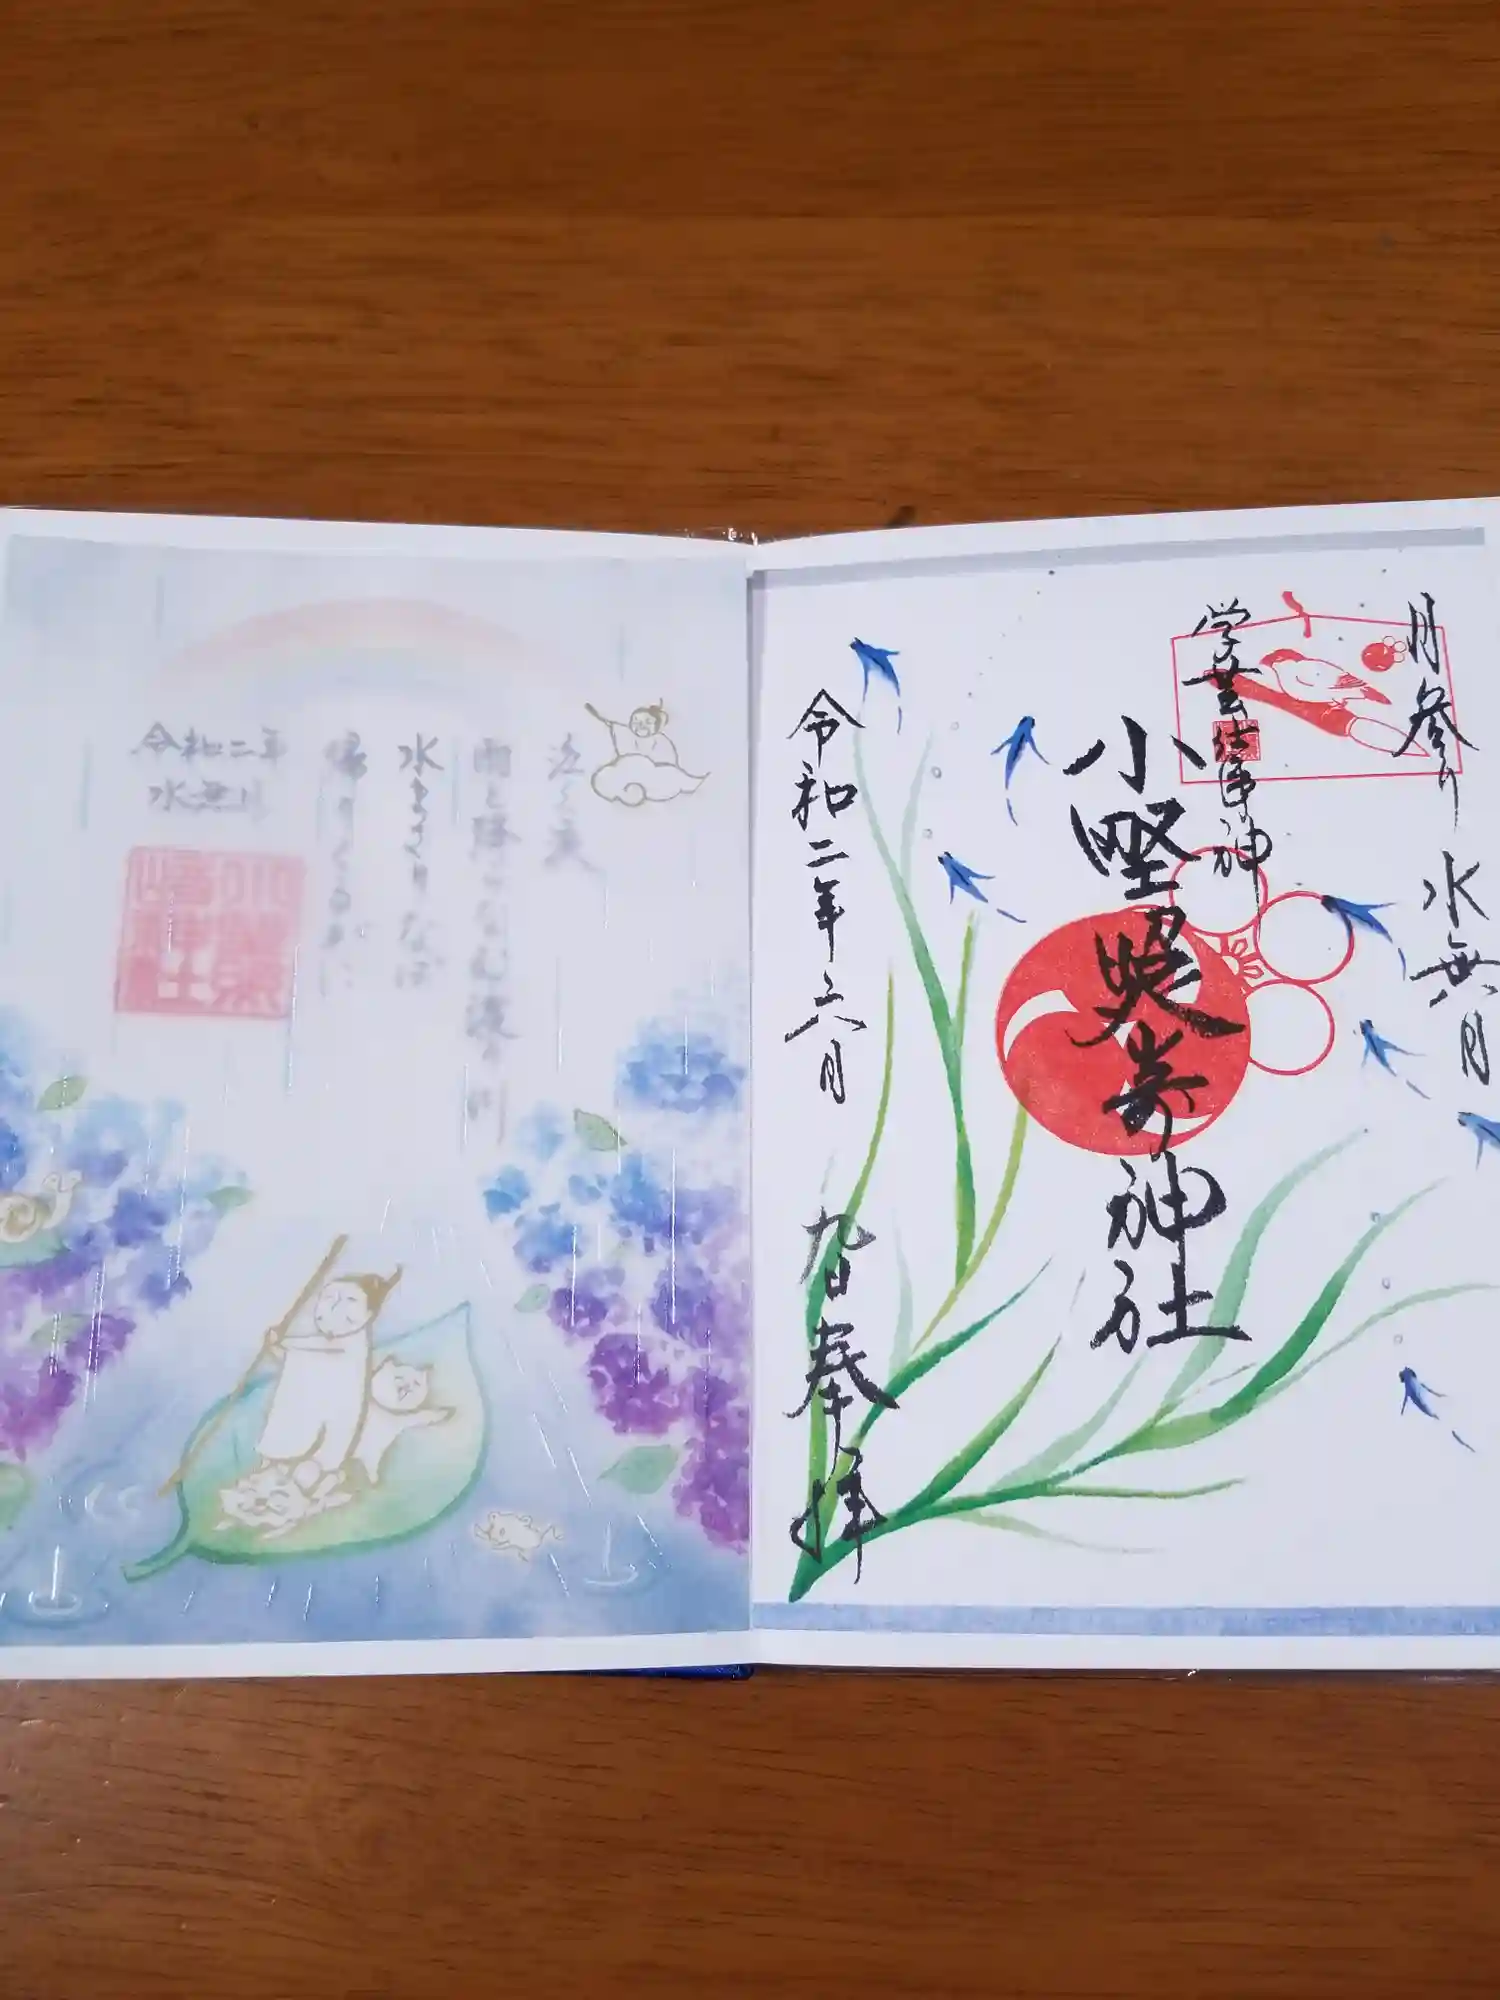 月参り 水無月
学芸仕事神
小野照崎神社
令和二年六月 九日 奉拝
泣く涙
雨と降らなむ渡り川
水まさりなば
帰りくるがに
令和二年
水無月
小野照崎神社